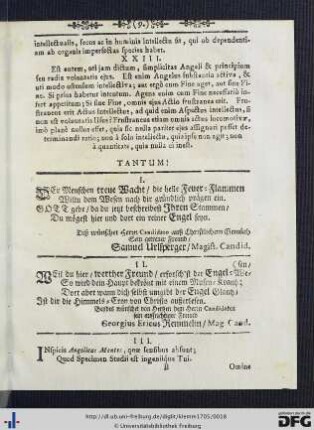 (9.)
intellectualis, secus ac in hominis intellectu fit, qui ob dependenti-
am ab organis imperfectas species habet.
XXIII.
Est autem, uti jam dictum, simplicitas Angeli & principium
seu radix voluntatis ejus. Est enim Angelus substantia activa, &
uti modo ostensum intellectiva, aut ergò cum Fine aget, aut sine Fi-
ne. Si prius habetur intentum. Agens enim cum Fine necessariò in-
fert appetitum; Si sine Fine, omnis ejus Actio frustranea erit. Fru-
straneus erit Actus intellectus, ad quid enim Aspectus intellectus, si
nem est voluntatis Frustraneus etiam omnis actus locomotivæ,
imò planè nullus esset, quia sic nulla pariter ejus assignari posset de-
terminandi ratio; non à solo intellectu, quia ipse non aget; non
à quantitate, quia nulla ei inest.
TANTUM!
I.
DEr Menschen treue Wacht / die helle Feuer-Flammen
Willtu dem Wesen nach dir gründlich prägen ein.
GOTT gebe / da du jetzt beschreibest Ihren Stammen /
Du mögest hier und dort ein reiner Engel seyn.
Diß wünschet Herrn Candidato auß Christlichem Gemüth
Samuel Urlsperger / Magist. Candid.
II.
(sen /
WEil du hier / werther Freund / erforschst der Engel-We-
So wird dein Haupt bekrönt mit einem Musen-Krantz;
Dort aber wann dich selbst umgibt der Engel Glantz /
Ist dir die Himmels-Cron von Christo außerlesen.
Beedes wünschet von Hertzen dem Herrn Candidaten
sein auffrichtiger Freund
Georgius Ericus Remmelin / Mag. Cand.
III.
INspicis Angelicas Mentes; quæ sensibus absunt;
Quod Specimen Studii est ingeniique Tui.
B
Omine
http://dl.ub.uni-freiburg.de/diglit/klemm1705/0018
© Universitätsbibliothek Freiburg
gefördert durch
DFG